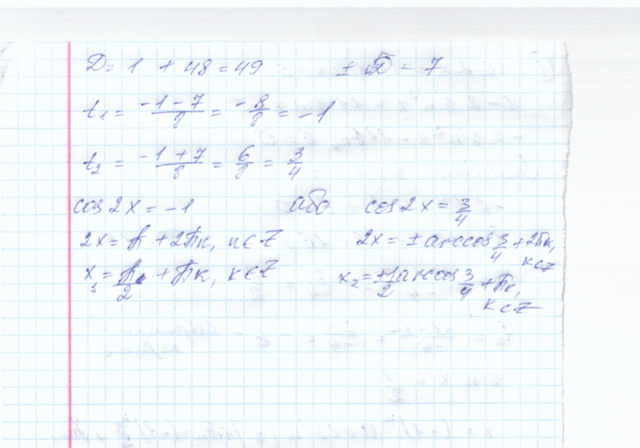 D = 1 + 48 = 49 ± √D = 7
t₁ = (-1-7)/8 = -8/8 = -1
t₂ = (-1+7)/8 = 6/8 = 3/4
cos 2x = -1 або cos 2x = 3/4
2x = π + 2πn, n ∈ Z 2x = ± arccos 3/4 + 2πk, k ∈ Z
x₁ = π/2 + πk, k ∈ Z x₂ = ±1/2 arccos 3/4 + πk, k ∈ Z